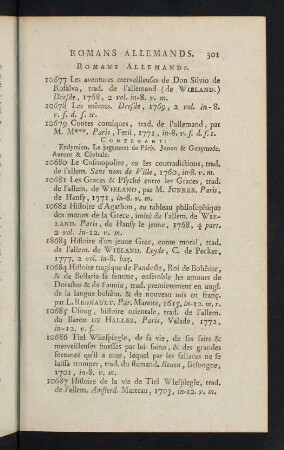 ROMANS ALLEMANDS. 301
ROMANS ALLEMANDS.
10677 Les aventures merveilleuses de Don Silvio de
Rosalva, trad. de l'allemand (de WIELAND.)
Dresde, 1768, 2 vol. in-8. v. m.
10678 Les mêmes. Dresde, 1769, 2 vol. in-8.
v. f. d. s. tr.
10679 Contes comiques, trad. de l'allemand, par
M. M***. Paris, Fetil, 1771, in-8. v. f. d. s. t.
CONTENANT:
Endymion. Le jugement de Pâris. Junon & Ganymede.
Aurore & Céphale.
10680 Le Cosmopolite, ou les contradictions, trad.
de l'allem. Sans nom de Ville, 1760, in-8. v. m.
10681 Les Graces & Psyché entre les Graces, trad.
de l'allem. de WIELAND, par M. JUNKER. Paris,
de Hansy, 1771, in-8. v. m.
10682 Histoire d'Agathon, ou tableau philosophique
des mœurs de la Grece, imité de l'allem. de WIE-
LAND. Paris, de Hansy le jeune, 1768, 4 part.
2 vol. in-12. v. m.
18683 Histoire d'un jeune Grec, conte moral, trad.
de l'allem. de WIELAND. Leyde, C. de Pecker,
1777, 2 vol. in-8. baz.
10684 Histoire tragique de Pandosto, Roi de Bohême,
& de Bellaria sa femme, ensemble les amours de
Dorastus & de Faunia, trad. premierement en angl.
de la langue bohêm. & de nouveau mis en franç.
par L. REGNAULT. Par. Marette, 1615, in-12. m. r.
10685 Usong, histoire orientale, trad. de l'allem.
du Baron DE HALLER. Paris, Valade, 1772,
in-12. v. f.
10686 Tiel Wliespiegle, de sa vie, de ses faits &
merveilleuses finesses par lui faites, & des grandes
fortunes qu'il a eues, lequel par les fallaces ne se
laissa tromper, trad. du flamand. Rouen, Besongne,
1701, in-8. v. m.
10687 Histoire de la vie de Tiel Wlespiegle, trad.
de l'allem. Amsterd. Marteau, 1703, in-12. v. m.